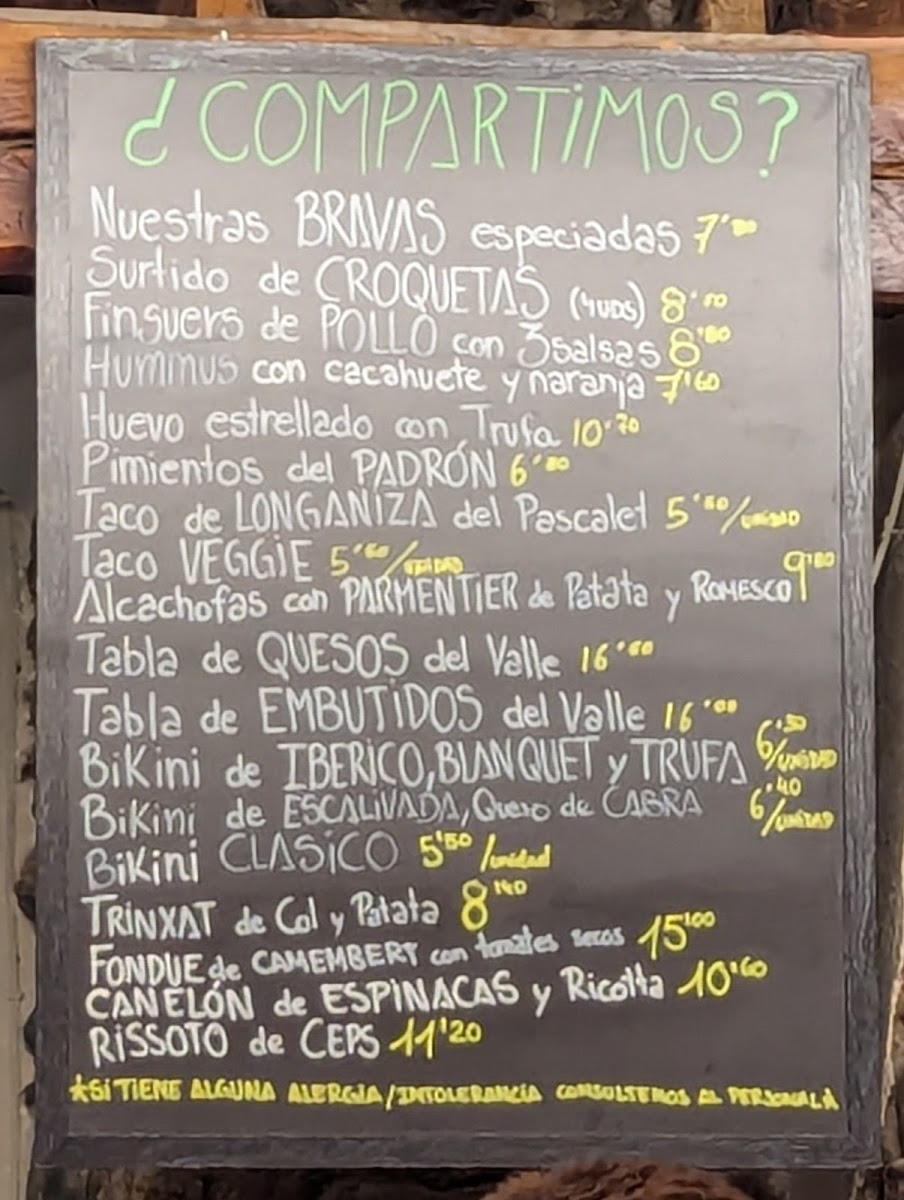 ¿COMPARTIMOS?
Nuestras BRAVAS especiadas
Surtido de CROQUETAS (4UDS) 8'50
Finguers de POLLO con 3 salsas 8'80
Hummus con cacahuete y naranja 7'60
Huevo estrellado con Trufa 10'70
Pimientos del PADRÓN
Taco de LONGANIZA del Pascalet 5'50/UNIDAD
Taco VEGGIE /UNIDAD
Alcachofas con PARMENTIER de Patata y ROMESCO 9'80
Tabla de QUESOS del Valle
Tabla de EMBUTIDOS del Valle 16'00
BiKini de IBERICO, BLANQUET y TRUFA 6'50/UNIDAD
BiKini de ESCALIVADA, Queso de CABRA 6'40/UNIDAD
BiKini CLASICO 5'50/unidad
TRINXAT de Col y Patata 8'40
FONDUE de CAMEMBERT con tomates secos 15'00
CANELÓN de ESPINACAS y Ricotta 10'60
RISSOTO de CEPS 11'20
*SI TIENE ALGUNA ALERGIA/INTOLERANCIA CONSULTENOS AL PERSONAL